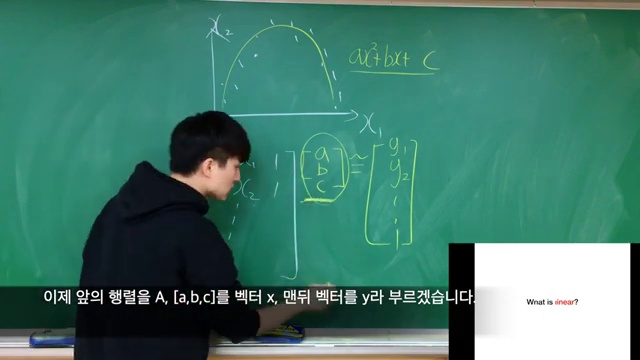 x₂
ax²+bx+ c
x₁
1 a y₁
x₂ 1 b ≈ y₂
c
이제 앞의 행렬을 A, [a,b,c]를 벡터 x, 맨뒤 벡터를 y라 부르겠습니다.
What is linear?